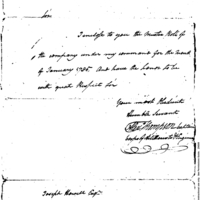 Sir
I inclose to you the Muster Role of
the company under my command for the month
of January 1786. And have the honor to be
with great Respect Sir
Your most Obedient
Humble Servant
Thompson
Joseph Howell Esqr.